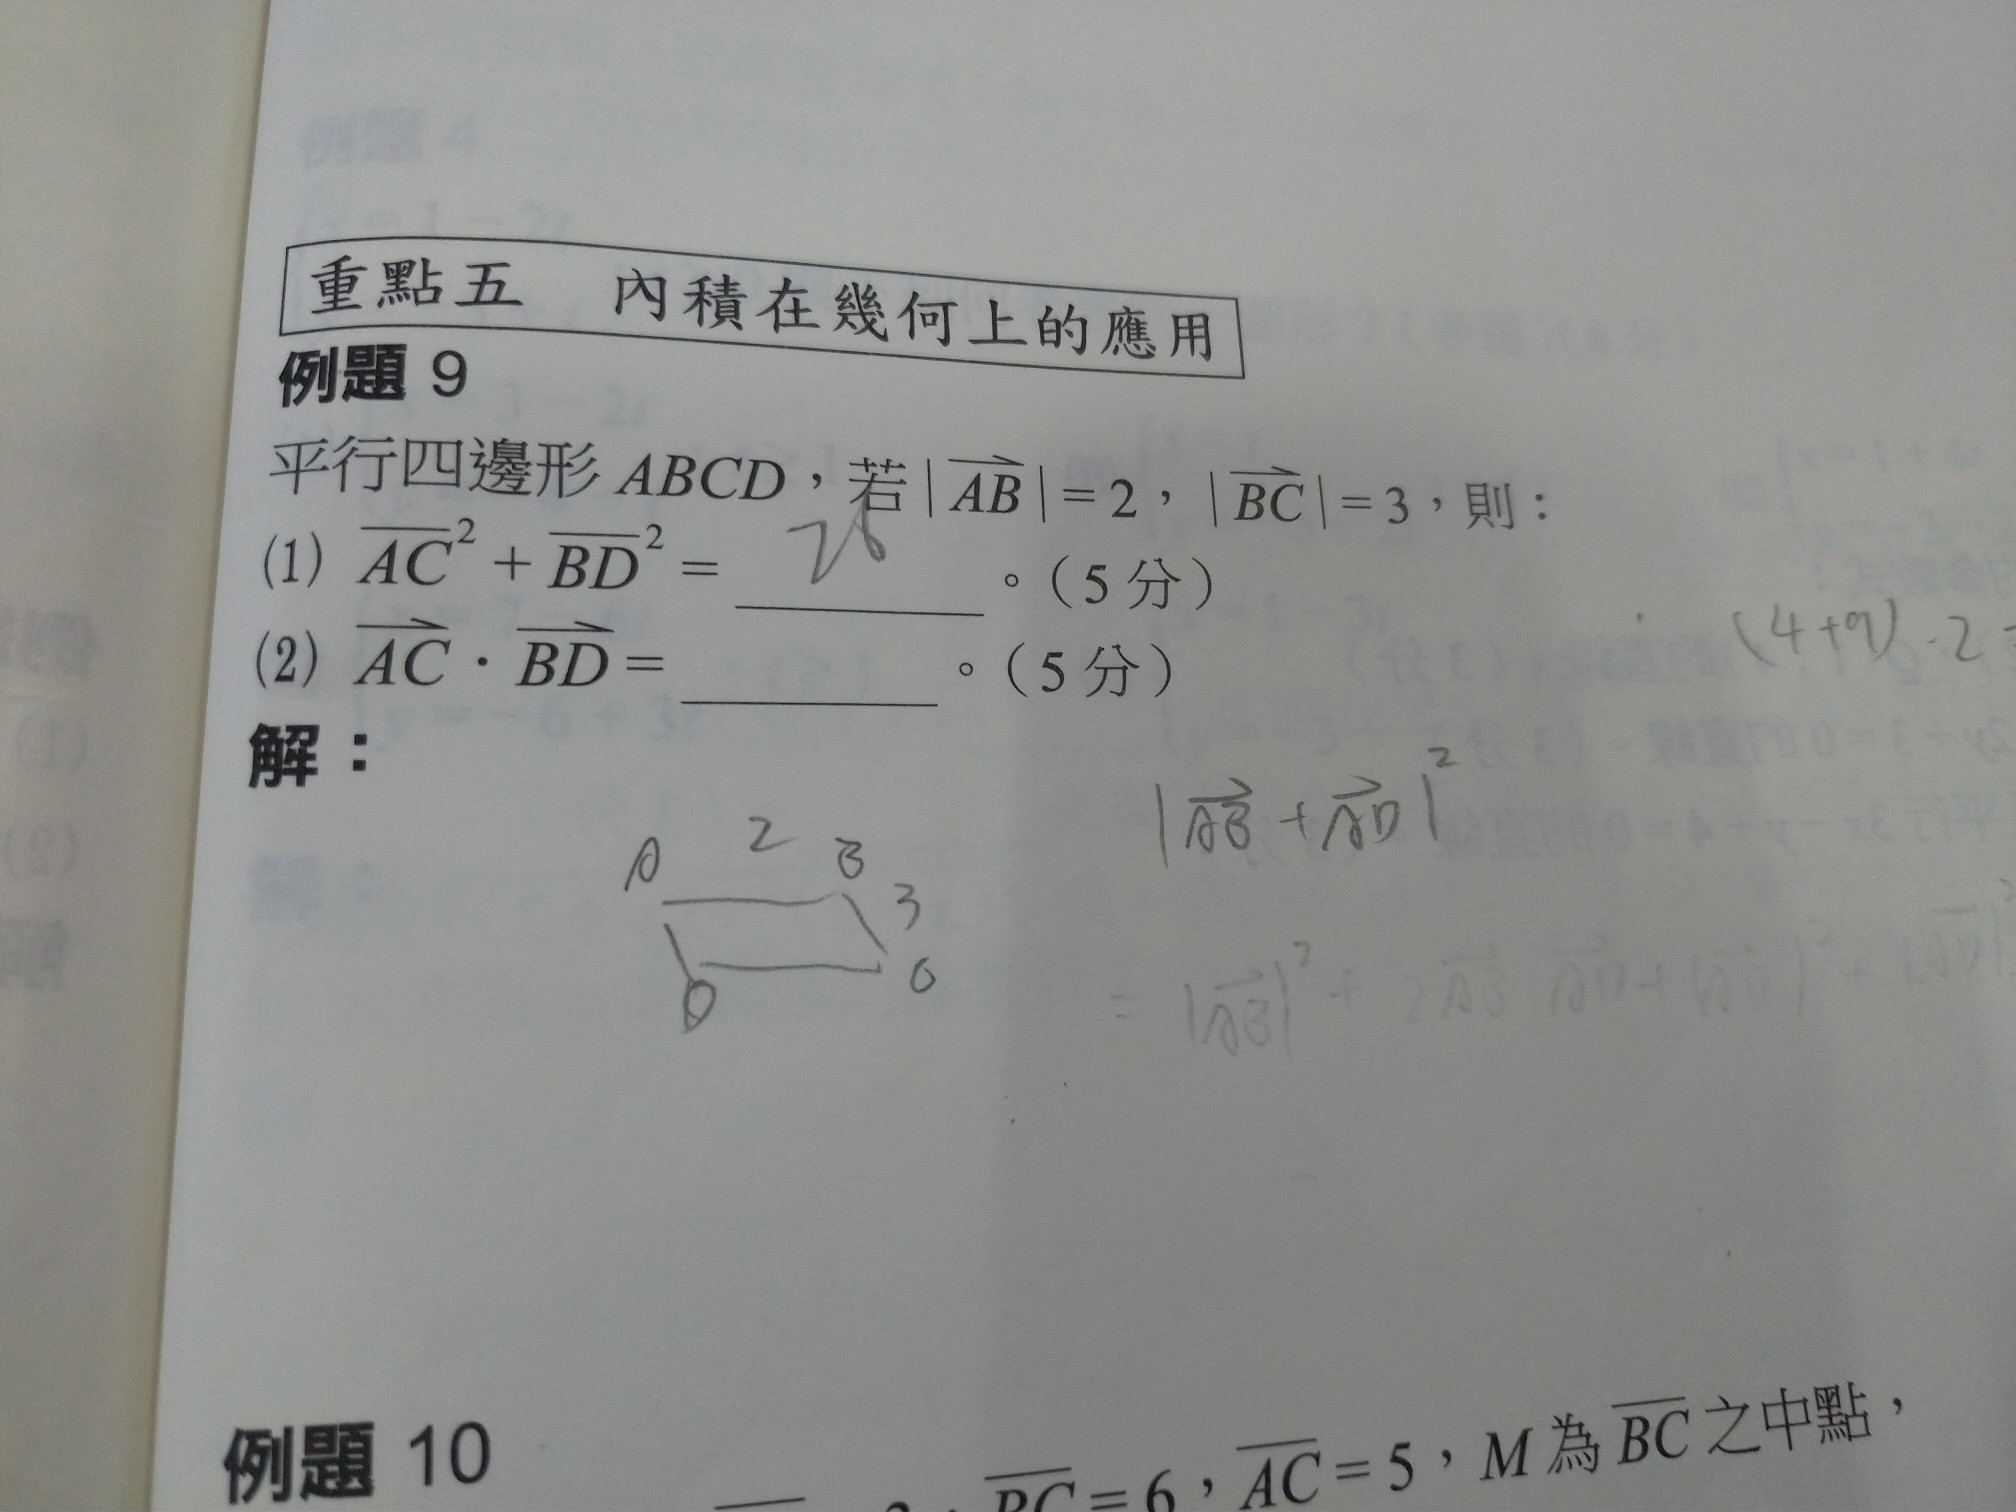 重點五 內積在幾何上的應用
例題 9
平行四邊形 ABCD，若 | AB | = 2， | BC | = 3，則：
(1) AC² + BD² = 26 。（5 分）
(4+9)·2=
(2) AC · BD = 。（5 分）
解：
|AB + AD|²
A 2 B
3
D C
= |AB|² + 2AB AD + |AD|² +
例題 10
BC = 6，AC = 5，M 為 BC 之中點，